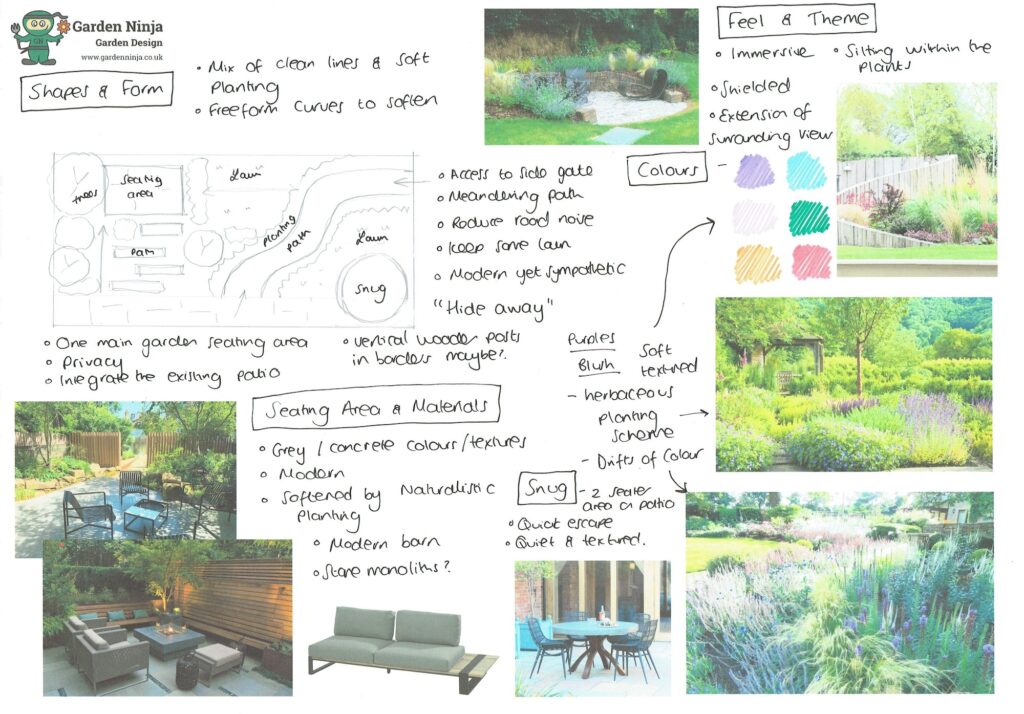 Garden Ninja
Garden Design
www.gardenninja.co.uk
GN
Shapes & Form
• Mix of clean lines & soft
Planting
• Freeform curves to soften
Feel & Theme
• Immersive
• Sitting within the
Plants
• Shielded
• Extension of
surranding view
Colours
trees
Seating
area
Lawn
Path
Planting
Path
Lawn
Snug
Access to side gate
Meandering path
Reduce road noise
Keep some lawn
Modern yet sympathetic
"Hide away"
• One main garden seating area
• Privacy
• Integrate the existing patio
• Vertical wooden posts
in borders maybe?
Seating Area & Materials
• Grey / concrete colours/textures
• Modern
• Softened by Naturalistic
Planting
• Modern barn
• Stone monoliths?
Purples
Blush
Soft
textured
- herbaceous
Planting
Scheme
- Drifts of Colour
Snug
- 2 seater
area on patio
• Quiet & textured.